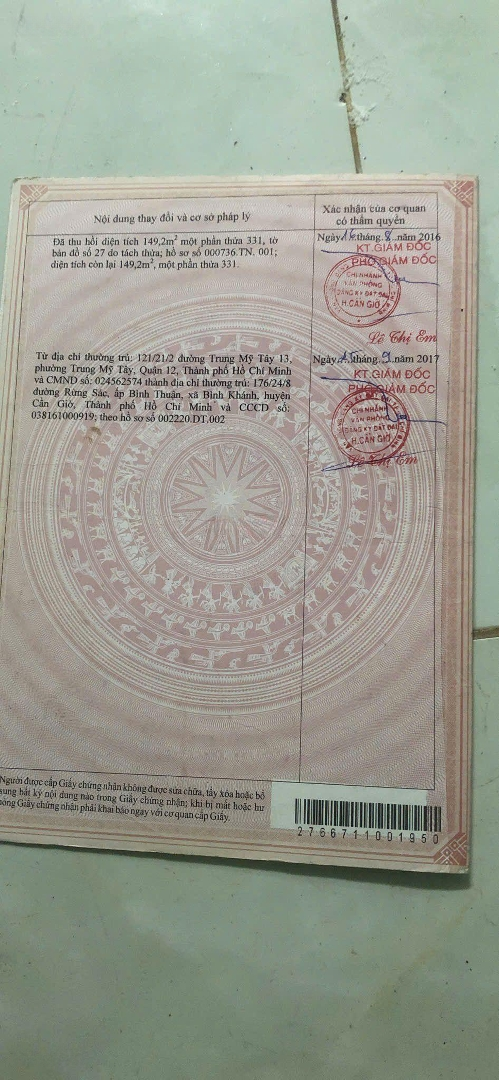 Nội dung thay đổi và cơ sở pháp lý
Xác nhận của cơ quan
có thẩm quyền
Đã thu hồi diện tích 149,2m² một phần thửa 331, tờ
bản đồ số 27 do tách thửa; hồ sơ số 000736.TN. 001;
diện tích còn lại 149,2m², một phần thửa 331.
Ngày 16 tháng 8 năm 2016
KT.GIÁM ĐỐC
PHÓ GIÁM ĐỐC
CHI NHÁNH
VĂN PHÒNG
ĐĂNG KÝ ĐẤT ĐAI
H.CẦN GIỜ
Lê Thị Em
Từ địa chỉ thường trú: 121/21/2 đường Trung Mỹ Tây 13,
phường Trung Mỹ Tây, Quận 12, Thành phố Hồ Chí Minh
và CMND số: 024562574 thành địa chỉ thường trú: 176/24/8
đường Rừng Sác, ấp Bình Thuận, xã Bình Khánh, huyện
Cần Giờ, Thành phố Hồ Chí Minh và CCCD số:
038161000919; theo hồ sơ số 002220.DT.002
Ngày tháng 9 năm 2017
KT.GIÁM ĐỐC
PHÓ GIÁM ĐỐC
CHI NHÁNH
VĂN PHÒNG
ĐĂNG KÝ ĐẤT ĐAI
H.CẦN GIỜ
Lê Thị Em
Người được cấp Giấy chứng nhận không được sửa chữa, tẩy xóa hoặc bổ
sung bất kỳ nội dung nào trong Giấy chứng nhận; khi bị mất hoặc hư
hỏng Giấy chứng nhận phải khai báo ngay với cơ quan cấp Giấy.
2766711001950